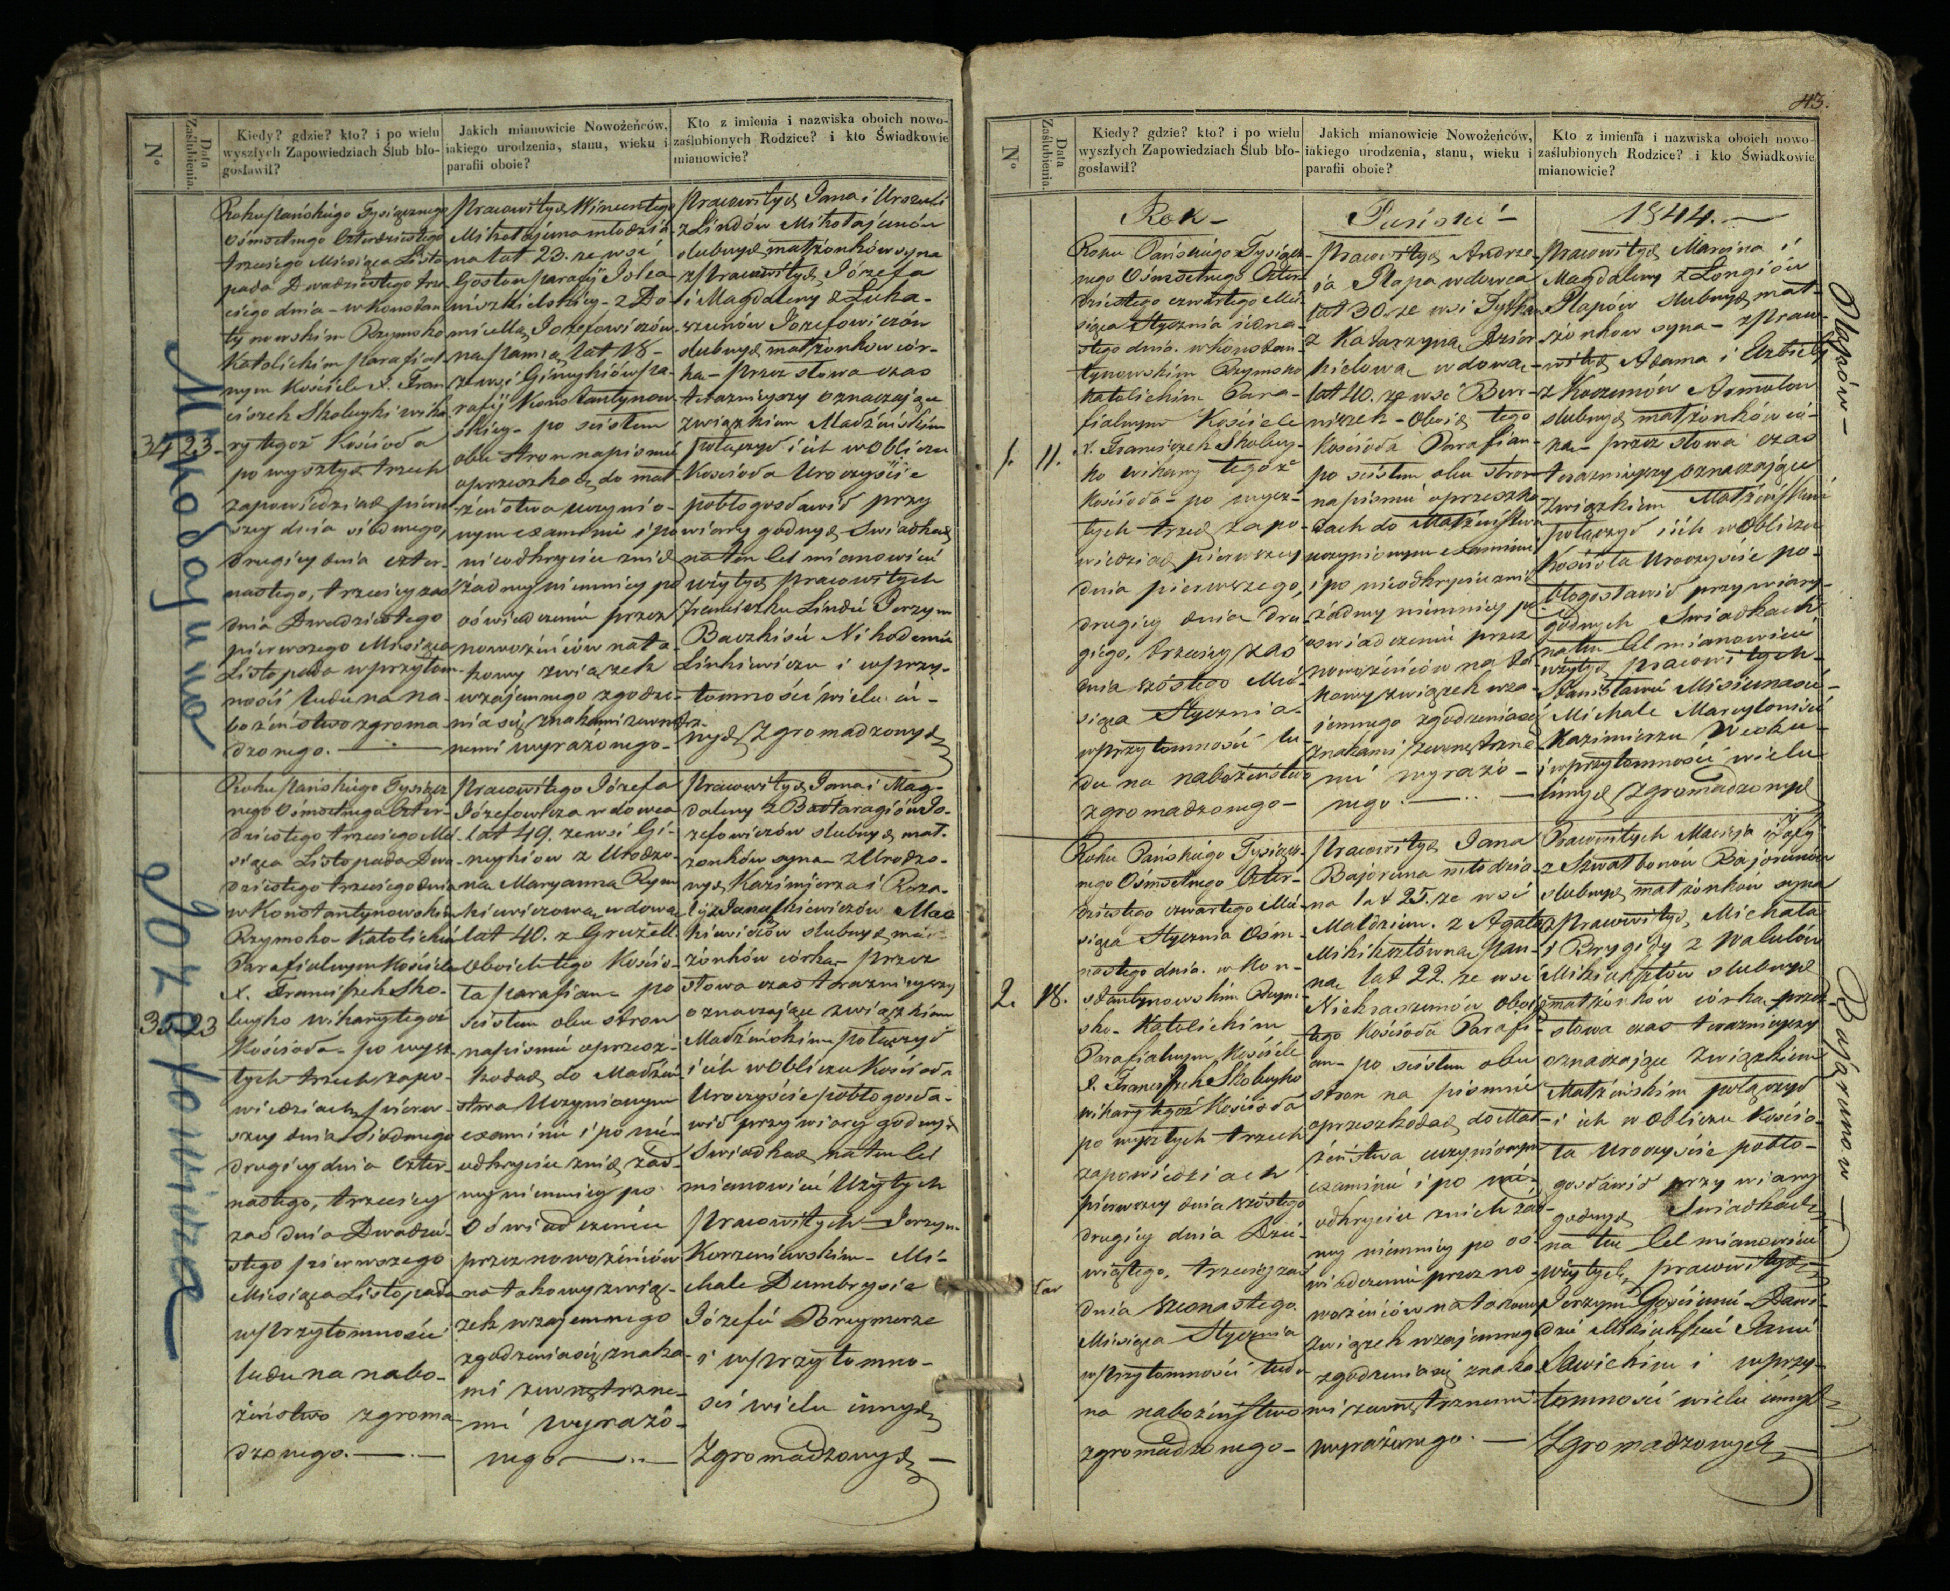 N°
Data Zaślubienia.
Kiedy? gdzie? kto? i po wielu
wyszłych Zapowiedziach Ślub bło-
gosławił?
Jakich mianowicie Nowożeńców,
iakiego urodzenia, stanu, wieku i
parafii oboie?
Kto z imienia i nazwiska oboich nowo-
zaślubionych Rodzice? i kto Świadkowie
mianowicie?
34
23.
Mikołajuna
Roku Pańskiego Tysiącznego
Ośmsetnego Czterdziestego
trzeciego Miesiąca Listo
pada Dwudziestego trze
ciego dnia – w Konstan
tynowskim Rzymsko
Katolickim Parafial
nym Kościele X. Fran
ciszek Skabeyki wika
ry tegoż Kościoła
po wyszłych trzech
zapowiedziach pierw
szey dnia siodmego,
drugiey dnia czter-
nastego, trzeciey zaś
dnia Dwudziestego
pierwszego Miesiąca
Listopada w przytom
ności ludu na na-
bożeństwo zgroma-
dzonego.
Pracowitych Wincentego
Mikołajuna młodzia
na lat 23. ze wsi
parafii
z Do-
micellą Jozefowiczów
ną Panną lat 18 –
ze wsi pa-
rafii Konstantynow
skiey – po scisłem
obu stron na pismie
o przeszkodach do mał
żeństwa uczynio-
nym examinie i po
nieodkryciu z nich
żadney niemniey po
oświadczeniu przez
nowożeńców na ta-
kowy związek
wzajemnego zgodze-
nia się znakami zewnętrz-
nemi wyrażonego –
Pracowitych Jana i Urszuli
z Lindów Mikołajunów
slubnych małżonków syna
z Pracowitych Józefa
i Magdaleny z Łuka-
szunów Józefowiczów
slubnych małżonków cór-
kę – przez słowa czas
teraźnieyszy oznaczające
związkiem Małżeńskim
połączył i ich w Obliczu
Kościoła Uroczyście
pobłogosławił przy
wiary godnych Świadkach
na ten cel mianowicie
użytych pracowitych
Franciszku Jerzym
Nikodemie
Linkiewiczu i w przy-
tomności wielu in-
nych Zgromadzonych
35
23
Józefowicza
Roku Pańskiego Tysiącz
nego Ośmsetnego Czter-
dziestego trzeciego Mie
siąca Listopada Dwu
dziestego trzeciego dnia
w Konstantynowskim
Rzymsko Katolickim
Parafialnym Kościele
X. Franciszek Ska-
beyko wikary tegoż
Kościoła – po wysz-
łych trzech zapo-
wiedziach pierw-
szey dnia Siodmego
drugiey dnia czter-
nastego, trzeciey
zaś dnia Dwudzie-
stego pierwszego
Miesiąca Listopada
w przytomności
ludu na nabo-
żeństwo zgroma
dzonego.
Pracowitego Józefa
Józefowicza wdowca
lat 49. ze wsi
z Urodzo-
ną Maryanną
wdową
lat 40. z
Oboich tego Kościo-
ła Parafian – po
scisłem obu stron
na pismie o przesz-
kodach do Małżeń
stwa Uczynionym
examinie i po nie-
odkryciu z nich żad-
ney niemniey po
Oświadczeniu
przez nowożeńców
na takowy zwią-
zek wzajemnego
zgodzenia się znaka-
mi zewnętrzne-
mi wyrażo-
nego
Pracowitych Jana i Mag-
daleny z Jo-
zefowiczów slubnych mał-
żonków syna z Urodzo-
nych Kazimierza i Roza-
lii
slubnych mał
żonków córkę – przez
słowa czas teraźnieyszy
oznaczające związkiem
Małżeńskim połączył
i ich w Obliczu Kościoła
Uroczyście pobłogosła-
wił przy wiary godnych
Świadkach na ten cel
mianowicie Użytych
Pracowitych – Jerzym
Korzeniewskim – Mi-
chale
Józefie
i w przytomno-
ści wielu innych
Zgromadzonych –
43.
N°
Data Zaślubienia.
Kiedy? gdzie? kto? i po wielu
wyszłych Zapowiedziach Ślub bło-
gosławił?
Jakich mianowicie Nowożeńców,
iakiego urodzenia, stanu, wieku i
parafii oboie?
Kto z imienia i nazwiska oboich nowo-
zaślubionych Rodzice? i kto Świadkowie
mianowicie?
Rok –
Pański –
1844. –
1.
11.
Roku Pańskiego Tysiącz-
nego Ośmsetnego Czter-
dziestego czwartego Mie-
siąca Stycznia iedna-
stego dnia. w Konstan-
tynowskim Rzymsko
Katolickim Para-
fialnym Kościele
X. Franciszek Skabey-
ko wikary tegoż
Kościoła – po wysz-
łych trzech zapo-
wiedziach pierwszey
dnia pierwszego,
drugiey dnia dru
giego, trzeciey zaś
dnia szóstego Mie-
siąca Stycznia –
w przytomności lu-
du na nabożeństwo
zgromadzonego –
Pracowitych Andrze-
ja Płapa wdowca
lat 30. ze wsi
z Katarzyną
wdową –
lat 40. ze wsi
– Oboich tego
Kościoła Parafian –
po scisłem obu stron
na pismie o przeszko-
dach do Małżeństwa
uczynionym examinie
i po nieodkryciu z nich
żadney niemniey po
oswiadczeniu przez
nowożeńców na ta-
kowy związek wza-
jemnego zgodzenia się
znakami zewnętrzne
mi wyrażo –
nego.
Pracowitych Marcina i
Magdaleny z Longiów
Płapów slubnych mał-
żonków syna – z Praco-
witych Adama i Elżbiety
z
slubnych małżonków cór-
kę – przez słowa czas
teraźnieyszy oznaczające
Związkiem Małżeńskim
połączył i ich w Obliczu
Kościoła Uroczyście po-
błogosławił przy wiary
godnych Świadkach
na ten cel mianowicie
użytych pracowitych –
Stanisławie Misiunasie –
Michale
Kazimierzu
i w przytomności wielu
innych Zgromadzonych
Płapów –
2.
18.
Roku Pańskiego Tysiącz-
nego Ośmsetnego Czter-
dziestego czwartego Mie-
siąca Stycznia Ośm-
nastego dnia. w Kon-
stantynowskim Rzym-
sko – Katolickim
Parafialnym Kościele
X. Franciszek Skabeyko
wikary tegoż Kościoła
po wyszłych trzech
zapowiedziach
pierwszey dnia szóstego
drugiey dnia Dzie-
wiątego, trzeciey zaś
dnia szesnastego
Miesiąca Stycznia
w przytomności ludu
na nabożeństwo
zgromadzonego –
Pracowitych Jana
Bajoruna młodzia
na lat 25. ze wsi
z Agatą
Pan-
ną lat 22. ze wsi
Oboich
tego Kościoła Parafi-
an – po scisłem obu
stron na pismie
o przeszkodach do Mał-
żeństwa uczynionym
examinie i po nie-
odkryciu z nich żad-
ney niemniey po os-
wiadczeniu przez no-
wożeńców na takowy
Związek wzajemnego
zgodzenia się znaka
mi zewnętrznemi
wyrażonego. –
Pracowitych Macieja i Zofii
z Bajorunów
slubnych małżonków syna
z Pracowitych Michała
i Brygidy z
slubnych
małżonków córkę – przez
słowa czas teraźnieyszy
oznaczające Związkiem
Małżeńskim połączył
i ich w Obliczu Kościo-
ła Uroczyście pobło-
gosławił przy wiary
godnych Świadkach
na ten Cel mianowicie
użytych, pracowitych
Jerzym Dawi-
dzie Janie
Sawickim i w przy-
tomności wielu innych
Zgromadzonych
Bajorunow –